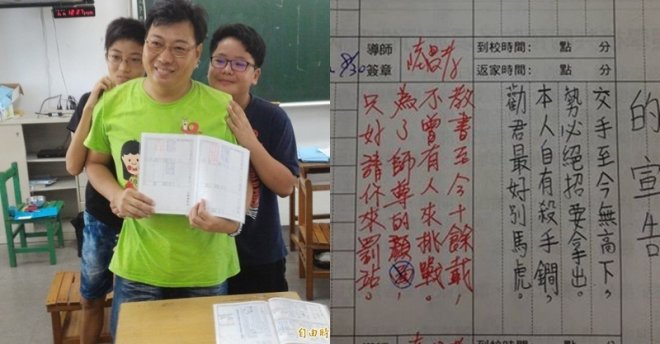 導師
簽章
到校時間：　點　分
返家時間：　點　分
的宣告
交手至今無高下，
勢必絕招要拿出。
本人自有殺手鐧，
勸君最好別馬虎。
教書至今十餘載，
不曾有人來挑戰。
為了師尊的顏面，
只好請你來罰站。
自由時